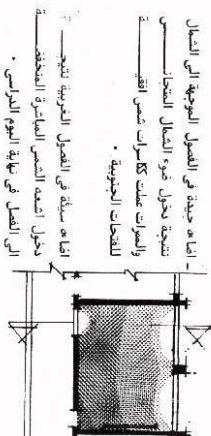 ـ اضاءه جيدة فى الفصول الموجهة الى الشمال
نتيجة دخول ضوء الشمال المتجانــــس
والممرات عملت ككاسرات شمس افقيـــة
للفتحات الجنوبية .
اضاءه سيئة فى الفصول الغربية نتيجــــة
دخول اشعه الشمس المباشرة المنخفضــــة
الى الفصل فى نهاية اليوم الدراسى .